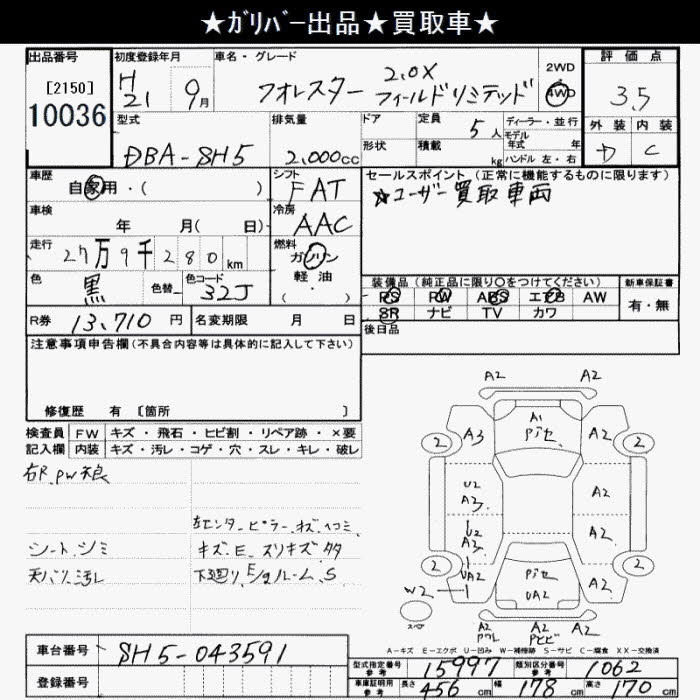 ★ガリバー出品★買取車★
出品番号 初度登録年月 車名・グレード 2WD 評価点
[2150] H21 9月 フォレスター 2.0X フィールドリミテッド 4WD 3.5
10036
型式 排気量 ドア 定員 ディーラー・並行 外装 内装
DBA-SH5 2,000cc 5人 モデル年式 年 D C
形状 積載 kg ハンドル 左・右
車歴 シフト セールスポイント (正常に機能するものに限ります)
自家用・( ) FAT ☆ユーザー買取車両
車検 冷房
年 月( 日) AAC
走行 27万9千280km 燃料 ガソリン
軽油
( ・ )
色 黒 色替 色コード 32J
装備品 (純正品に限り○をつけてください) 新車保証書
PS PW ABS エアB AW 有・無
SR ナビ TV カワ
R券 13,710円 名変期限 月 日 後日品
注意事項申告欄 (不具合内容等は具体的に記入して下さい)
修復歴 有 [箇所 ]
検査員 FW キズ・飛石・ヒビ割・リペア跡・×要
記入欄 内装 キズ・汚レ・コゲ・穴・スレ・キレ・破レ
右R.PW不良
左センターピラー.キズ.ヘコミ
シート.シミ キズ.E.スリキズ多々
天バリ汚レ 下廻り.E/gルーム.S
A2 A2
A1
Pﾋﾞｾ
2 A3 A2 2
U2 A3 A2
U2 A3 A2
2 UA2 Pﾋﾞｾ UA2 A2 2
W2
スペア
A2 ﾜﾚ A2 Pﾋﾞﾋﾞ A2
A-キズ E-エクボ U-凹み W-補修跡 S-サビ C-腐食 XX-交換済
車台番号 SH5-043591
登録番号
型式指定番号 参考 15997 類別区分番号 参考 1062
車庫証明用 参考 長さ 456cm 幅 178cm 高さ 170cm